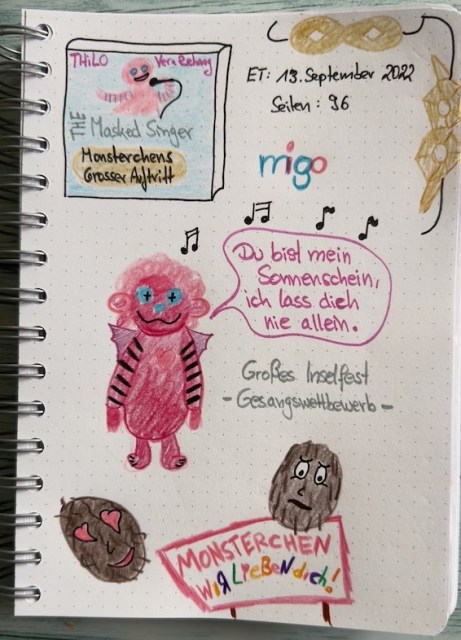 THiLO Vera Schmidt
THE Masked Singer
Monsterchens
Grosser Auftritt
ET: 13. September 2022
Seiten: 96
migo
Du bist mein
Sonnenschein,
ich lass dich
nie allein.
Großes Inselfest
- Gesangswettbewerb -
MONSTERCHEN
WiR LiEBEN dich!